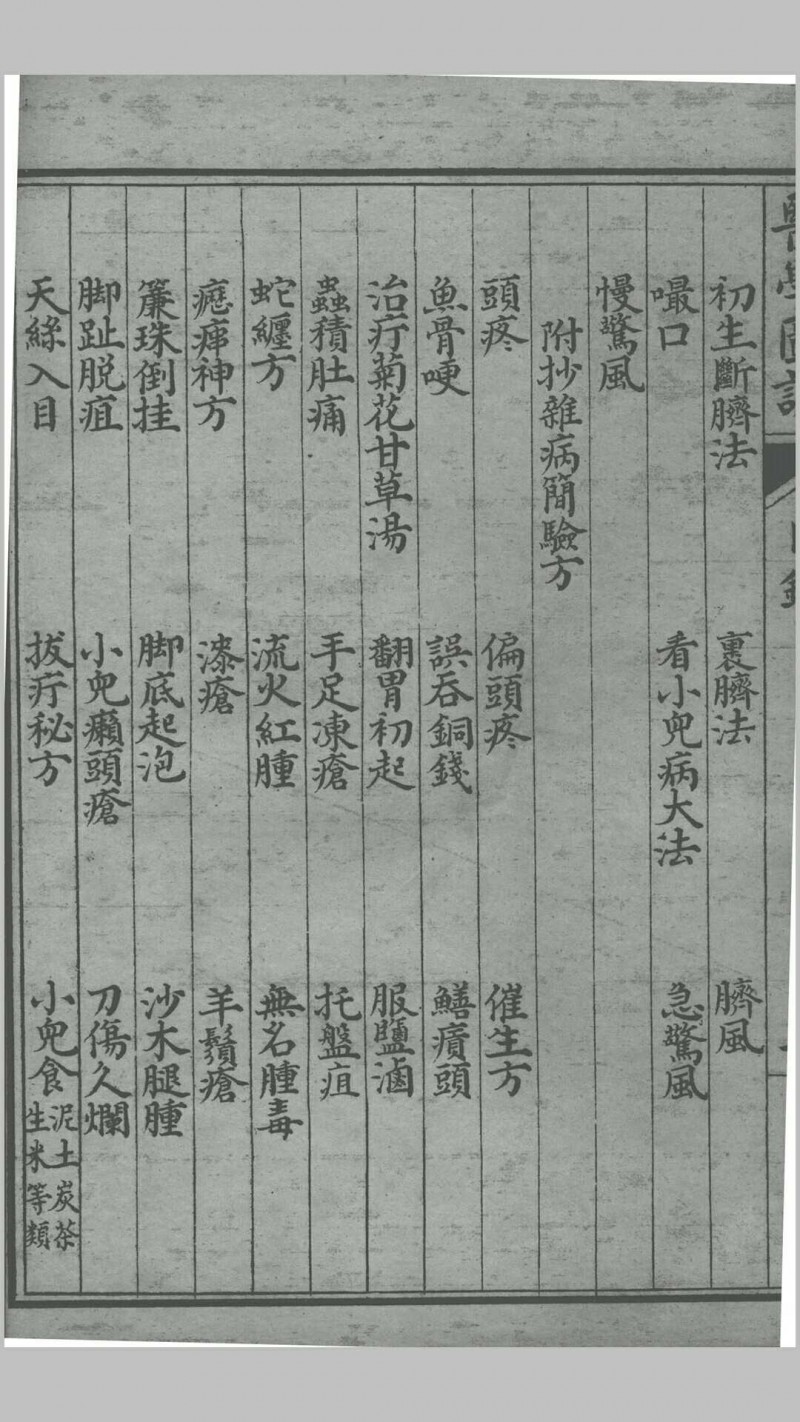 醫學圖說
目錄
初生斷臍法　裹臍法　臍風
嘬口　看小兒病大法　急驚風
慢驚風
附抄雜病簡驗方
頭疼　偏頭疼　催生方
魚骨哽　誤吞銅錢　鱔癀頭
治疔菊花甘草湯　翻胃初起　服鹽滷
蟲積肚痛　手足凍瘡　托盤疽
蛇纏方　流火紅腫　無名腫毒
瘛瘲神方　漆瘡　羊鬚瘡
簾珠倒挂　脚底起泡　沙木腿腫
脚趾脱疽　小兒癩頭瘡　刀傷久爛
天絲入目　拔疔秘方　小兒食泥土炭茶生米等類